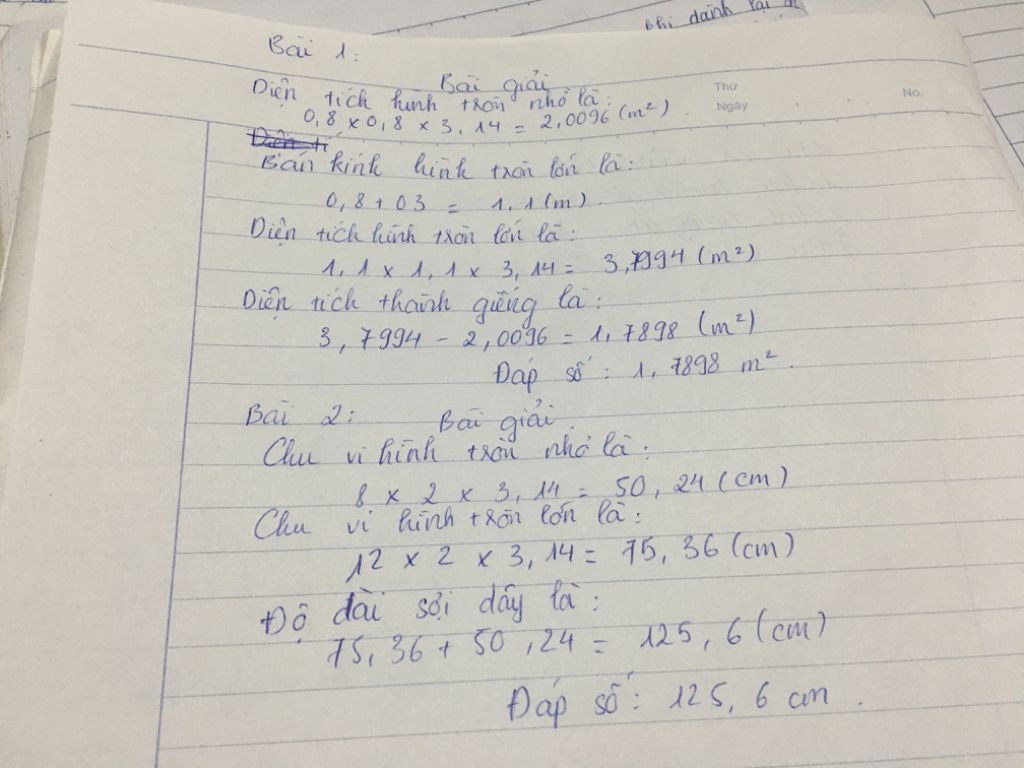 Khi đánh lại đ
Bài 1:
Bài giải
Thứ
Ngày
No.
Diện tích hình tròn nhỏ là:
0,8 x 0,8 x 3,14 = 2,0096 (m²).
Bán kính hình tròn lớn là:
0,8 + 03 = 1,1 (m).
Diện tích hình tròn lớn là:
1,1 x 1,1 x 3,14 = 3,7994 (m²)
Diện tích thành giếng là:
3,7994 - 2,0096 = 1,7898 (m²)
Đáp số: 1,7898 m².
Bài 2: Bài giải.
Chu vi hình tròn nhỏ là:
8 x 2 x 3,14 = 50,24 (cm)
Chu vi hình tròn lớn là:
12 x 2 x 3,14 = 75,36 (cm)
Độ dài sợi dây là:
75,36 + 50,24 = 125,6 (cm)
Đáp số: 125,6 cm.